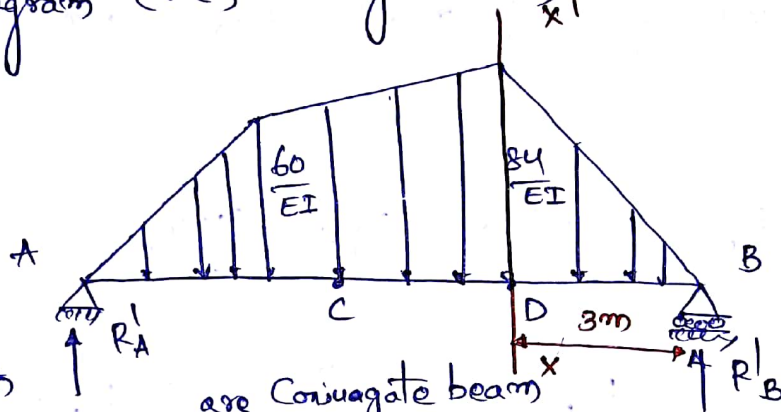 gram (
x'
60
EI
84
EI
A
B
C
D
3m
R'A
x
R'B
are Conjuagate beam